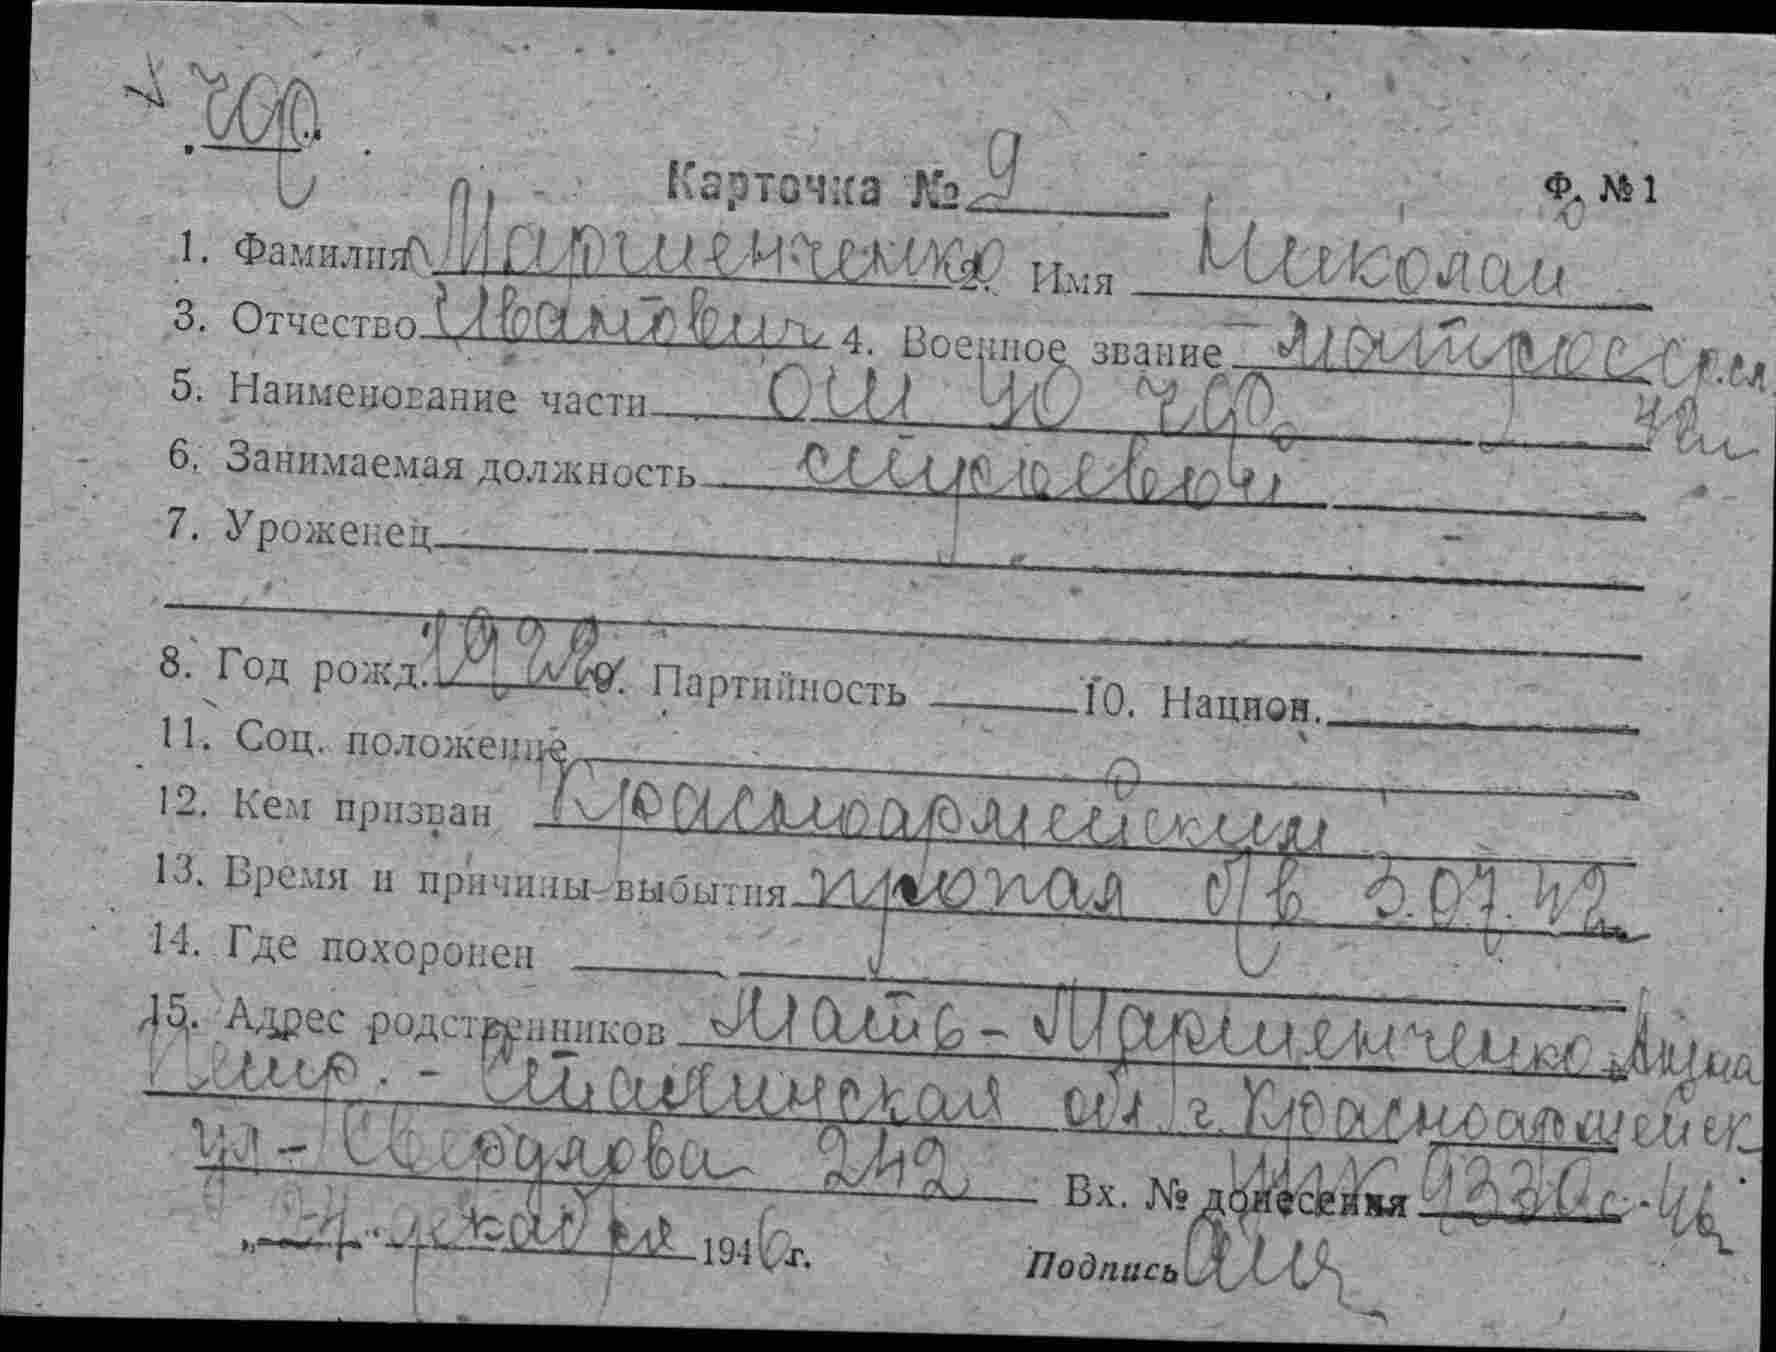 чф.
Карточка № 9 Ф. № 1
1. Фамилия Марценченко 2. Имя Николай
3. Отчество Иванович 4. Военное звание матрос ср.сл
5. Наименование части ОШ ЧО ЧФ.
6. Занимаемая должность строевой
7. Уроженец
8. Год рожд. 192 9. Партийность 10. Национ.
11. Соц. положение
12. Кем призван Красноармейским
13. Время и причины выбытия пропал б/в 3.07.42
14. Где похоронен
15. Адрес родственников Мать - Марценченко
Сталинская обл г. Красноармейск
ул - Свердлова 242 Вх. № донесения 9330с - 46
„ 24 " декабря 1946 г. Подпись